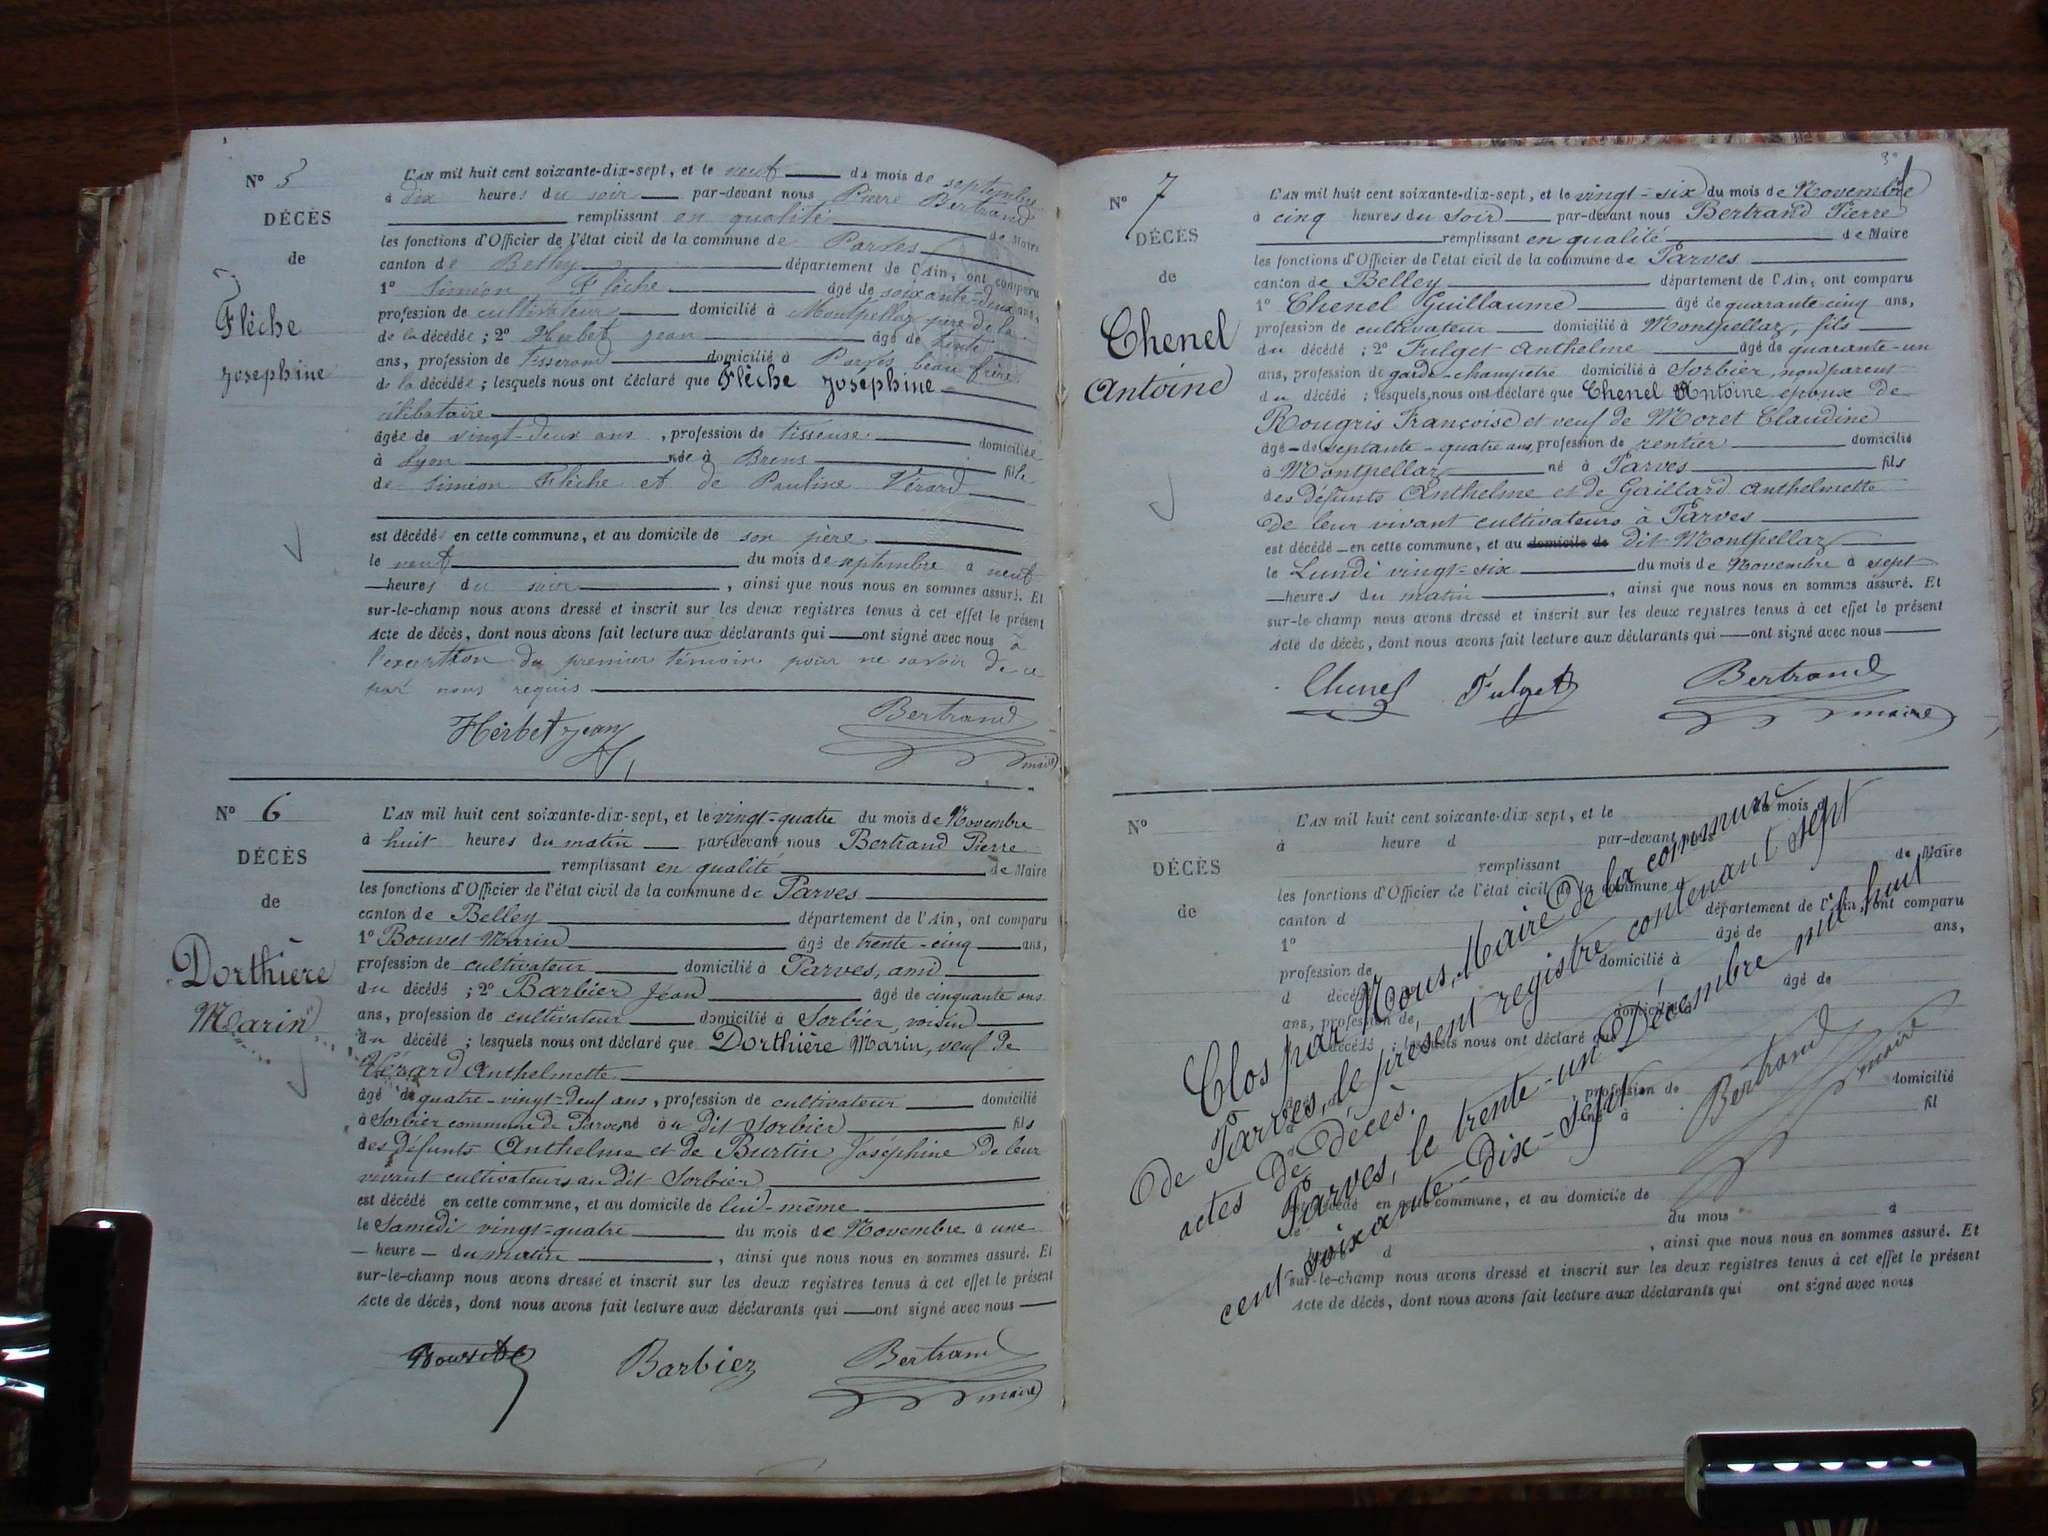 N° 5
DÉCÈS
de
Flèche
Josephine
L'AN mil huit cent soixante-dix-sept, et le neuf du mois de septembre
à dix heures du soir par-devant nous Pierre Bertrand
remplissant en qualité de Maire
les fonctions d'Officier de l'état civil de la commune de Parves
canton de Belley département de l'Ain, ont comparu
1° Siméon Flèche âgé de soixante-deux ans,
profession de cultivateur domicilié à Montpellaz père de la
de la décédée ; 2° Herbet jean âgé de trente
ans, profession de tisserand domicilié à Parves beau frère
de la décédée ; lesquels nous ont déclaré que Flèche Joséphine
célibataire
âgée de vingt-deux ans, profession de tisseuse domiciliée
à Lyon née à Brens fille
de Siméon Flèche et de Pauline Vérard
est décédée en cette commune, et au domicile de son père
le neuf du mois de septembre à neuf
heures du soir, ainsi que nous nous en sommes assuré. Et
sur-le-champ nous avons dressé et inscrit sur les deux registres tenus à cet effet le présent
Acte de décès, dont nous avons fait lecture aux déclarants qui ont signé avec nous à
l'exception du premier témoin pour ne savoir de ce
par nous requis
Herbet jean Bertrand
maire
N° 6
DÉCÈS
de
Dorthière
Marin
L'AN mil huit cent soixante-dix-sept, et le vingt-quatre du mois de Novembre
à huit heures du matin par-devant nous Bertrand Pierre
remplissant en qualité de Maire
les fonctions d'Officier de l'état civil de la commune de Parves
canton de Belley département de l'Ain, ont comparu
1° Bouvet Marin âgé de trente-cinq ans,
profession de cultivateur domicilié à Parves, ami
du décédé ; 2° Barbier Jean âgé de cinquante ans
ans, profession de cultivateur domicilié à Sorbier, voisin
du décédé ; lesquels nous ont déclaré que Dorthière Marin, veuf de
Vérard Anthelmette
âgé de quatre-vingt-deux ans, profession de cultivateur domicilié
à Sorbier commune de Parves né au dit Sorbier fils
des défunts Anthelme et de Burtin Joséphine de leur
vivant cultivateurs au dit Sorbier
est décédé en cette commune, et au domicile de lui-même
le Samedi vingt-quatre du mois de Novembre à une
heure du matin, ainsi que nous nous en sommes assuré. Et
sur-le-champ nous avons dressé et inscrit sur les deux registres tenus à cet effet le présent
Acte de décès, dont nous avons fait lecture aux déclarants qui ont signé avec nous
Barbier Bertrand
maire
N° 7
DÉCÈS
de
Chenel
Antoine
L'AN mil huit cent soixante-dix-sept, et le vingt-six du mois de Novembre
à cinq heures du soir par-devant nous Bertrand Pierre
remplissant en qualité de Maire
les fonctions d'Officier de l'état civil de la commune de Parves
canton de Belley département de l'Ain, ont comparu
1° Chenel Guillaume âgé de quarante-cinq ans,
profession de cultivateur domicilié à Montpellaz, fils
du décédé ; 2° Fulget Anthelme âgé de quarante-un
ans, profession de garde-champetre domicilié à Sorbier, non parent
du décédé ; lesquels nous ont déclaré que Chenel Antoine époux de
Rougris Françoise et veuf de Moret Claudine
âgé de septante-quatre ans, profession de rentier domicilié
à Montpellaz né à Parves fils
des défunts Anthelme et de Gaillard Anthelmette
de leur vivant cultivateurs à Parves
est décédé en cette commune, et au domicile de dit Montpellaz
le Lundi vingt-six du mois de Novembre à sept
heures du matin, ainsi que nous nous en sommes assuré. Et
sur-le-champ nous avons dressé et inscrit sur les deux registres tenus à cet effet le présent
Acte de décès, dont nous avons fait lecture aux déclarants qui ont signé avec nous
Chenel Fulget Bertrand
maire
N°
DÉCÈS
de
L'AN mil huit cent soixante-dix-sept, et le du mois d
à heure d par-devant nous
remplissant de Maire
les fonctions d'Officier de l'état civil de la commune d
canton d département de l'Ain, ont comparu
1° âgé de ans,
profession de domicilié à
d décédé âgé de
ans, profession de domicilié
décédé ; lesquels nous ont déclaré que
profession de domicilié
né à fil
est décédé en cette commune, et au domicile de
du mois à
d , ainsi que nous nous en sommes assuré. Et
sur-le-champ nous avons dressé et inscrit sur les deux registres tenus à cet effet le présent
Acte de décès, dont nous avons fait lecture aux déclarants qui ont signé avec nous
Clos par Nous, Maire de la commune
de Parves, le présent registre contenant sept
actes de Décès.
Parves, le trente-un Décembre mil huit
cent soixante-dix-sept
Bertrand
maire